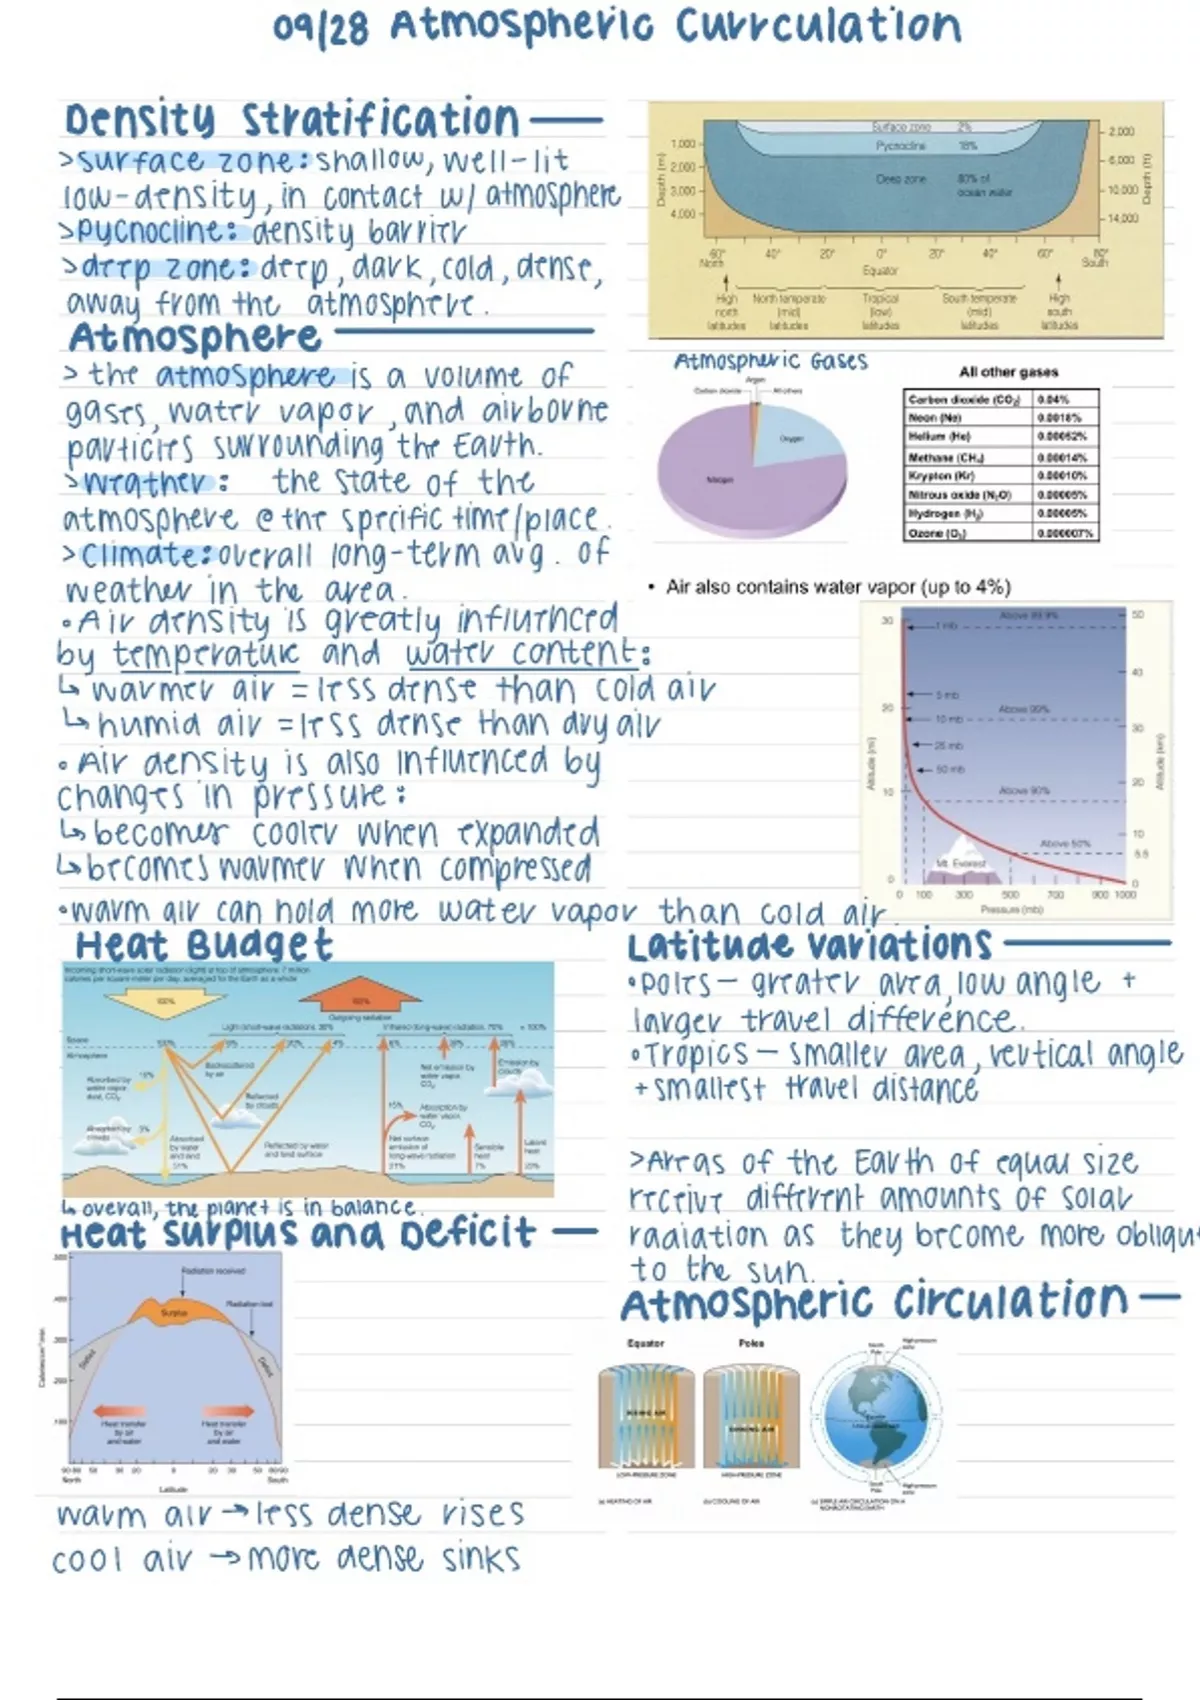 09/28 Atmospheric Currculation
Density Stratification
>surface zone: shallow, well-lit
low-density, in contact w/ atmosphere
>pycnocline: density barrier
>deep zone: deep, dark, cold, dense,
away from the atmosphere.
Surface zone 2%
Pycnocline 18%
Deep zone 80% of
ocean water
Depth (m)
1,000
2,000
3,000
4,000
2,000
6,000
10,000
14,000
Depth (ft)
60° 40° 20° 0° 20° 40° 60° 80°
North Equator South
High
north
latitudes
North temperate
(mid)
latitudes
Tropical
(low)
latitudes
South temperate
(mid)
latitudes
High
south
latitudes
Atmosphere
> the atmosphere is a volume of
gases, water vapor, and airborne
particles surrounding the Earth.
>weather: the state of the
atmosphere @ the specific time/place.
>climate: overall long-term avg. of
weather in the area.
•Air density is greatly influenced
by temperature and water content:
↳ warmer air = less dense than cold air
↳ humid air = less dense than dry air
• Air density is also influenced by
changes in pressure:
↳ becomes cooler when expanded
↳ becomes warmer when compressed
•warm air can hold more water vapor than cold air.
Atmospheric Gases
Argon
Carbon dioxide
All others
Oxygen
Nitrogen
All other gases
Carbon dioxide (CO2) 0.04%
Neon (Ne) 0.0018%
Helium (He) 0.00052%
Methane (CH4) 0.00014%
Krypton (Kr) 0.00010%
Nitrous oxide (N2O) 0.00005%
Hydrogen (H2) 0.00005%
Ozone (O3) 0.000007%
• Air also contains water vapor (up to 4%)
Above 99.9%
1 mb
5 mb
Above 99%
10 mb
25 mb
50 mb
Above 90%
Above 50%
Mt. Everest
Altitude (mi)
30
20
10
0
Altitude (km)
50
40
30
20
10
5.5
0
0 100 300 500 700 900 1000
Pressure (mb)
Heat Budget
Incoming short-wave solar radiation (light) at top of atmosphere: 7 million
calories per square meter per day, averaged for the Earth as a whole
100%
Outgoing radiation
Light (short-wave) radiations, 30%
Infrared (long-wave) radiation, 70%
= 100%
Space
Atmosphere
Absorbed by
water vapor,
dust, CO2
Absorbed by
clouds
3%
Absorbed
by water
and land
Backscattered
by air
Reflected
by clouds
Reflected by water
and land surface
15%
Net emission by
water vapor,
CO2
Absorption by
water vapor,
CO2
Emission by
clouds
Net surface
emission of
long-wave radiation
21%
Sensible
heat
7%
Latent
heat
↳ overall, the planet is in balance.
Latitude Variations
•Poles— greater area, low angle +
larger travel difference.
•Tropics— smaller area, vertical angle
+smallest travel distance
>Areas of the Earth of equal size
receive different amounts of solar
radiation as they become more obliqu
to the sun.
Heat Surplus and Deficit
Radiation received
Radiation lost
Surplus
Deficit
Deficit
500
400
300
200
100
Heat transfer
by air
and water
Heat transfer
by air
and water
North
South
Latitude
warm air → less dense rises
cool air → more dense sinks
Atmospheric Circulation
Equator
Poles
RISING AIR
SINKING AIR
LOW-PRESSURE ZONE
HIGH-PRESSURE ZONE
(a) HEATING OF AIR
(b) COOLING OF AIR
North
Pole
High-pressure
zone
Equator
South
Pole
High-pressure
zone
(c) SIMPLE AIR CIRCULATION ON A
NONROTATING EARTH